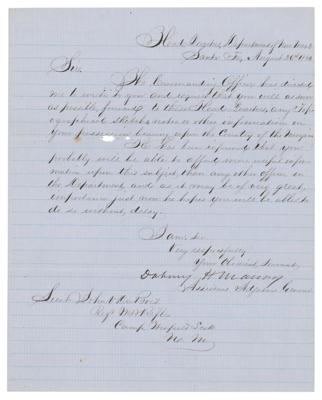 Head Quarters, Department of New Mex
Santa Fe, August 26th
Sir.
The Commanding Officer has directed
me to write to you and request that you will as soon
as possible forward to these Head Quarters, any Top
ographical Sketches, notes or other information in
your possession bearing upon the Country of the
He has been informed that you
probably will be able to afford more useful infor
mation upon this subject than any other officer in
the Department, and as it may be of very great
importance just now he hopes you will be able to
do so without delay.
I am, Sir
Very respectfully
Your Obedient Servant,
Dabney H Maury
Assistant Adjutant General
Lieut John V. Du Bois
Regt Mtd Rifles
Camp Winfield Scott
N. M.